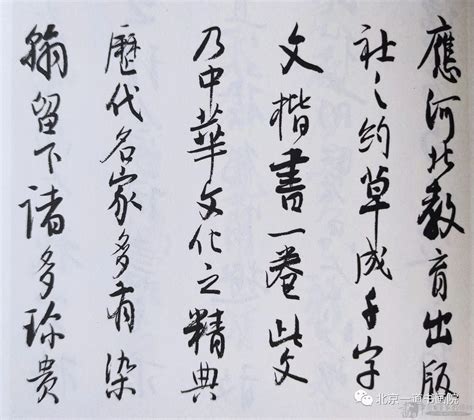 應河北教育出版
社之約草成千字
文楷書一卷此文
乃中華文化之精典
歷代名家多有染
翰留下諸多珍贵
北京一道书画院